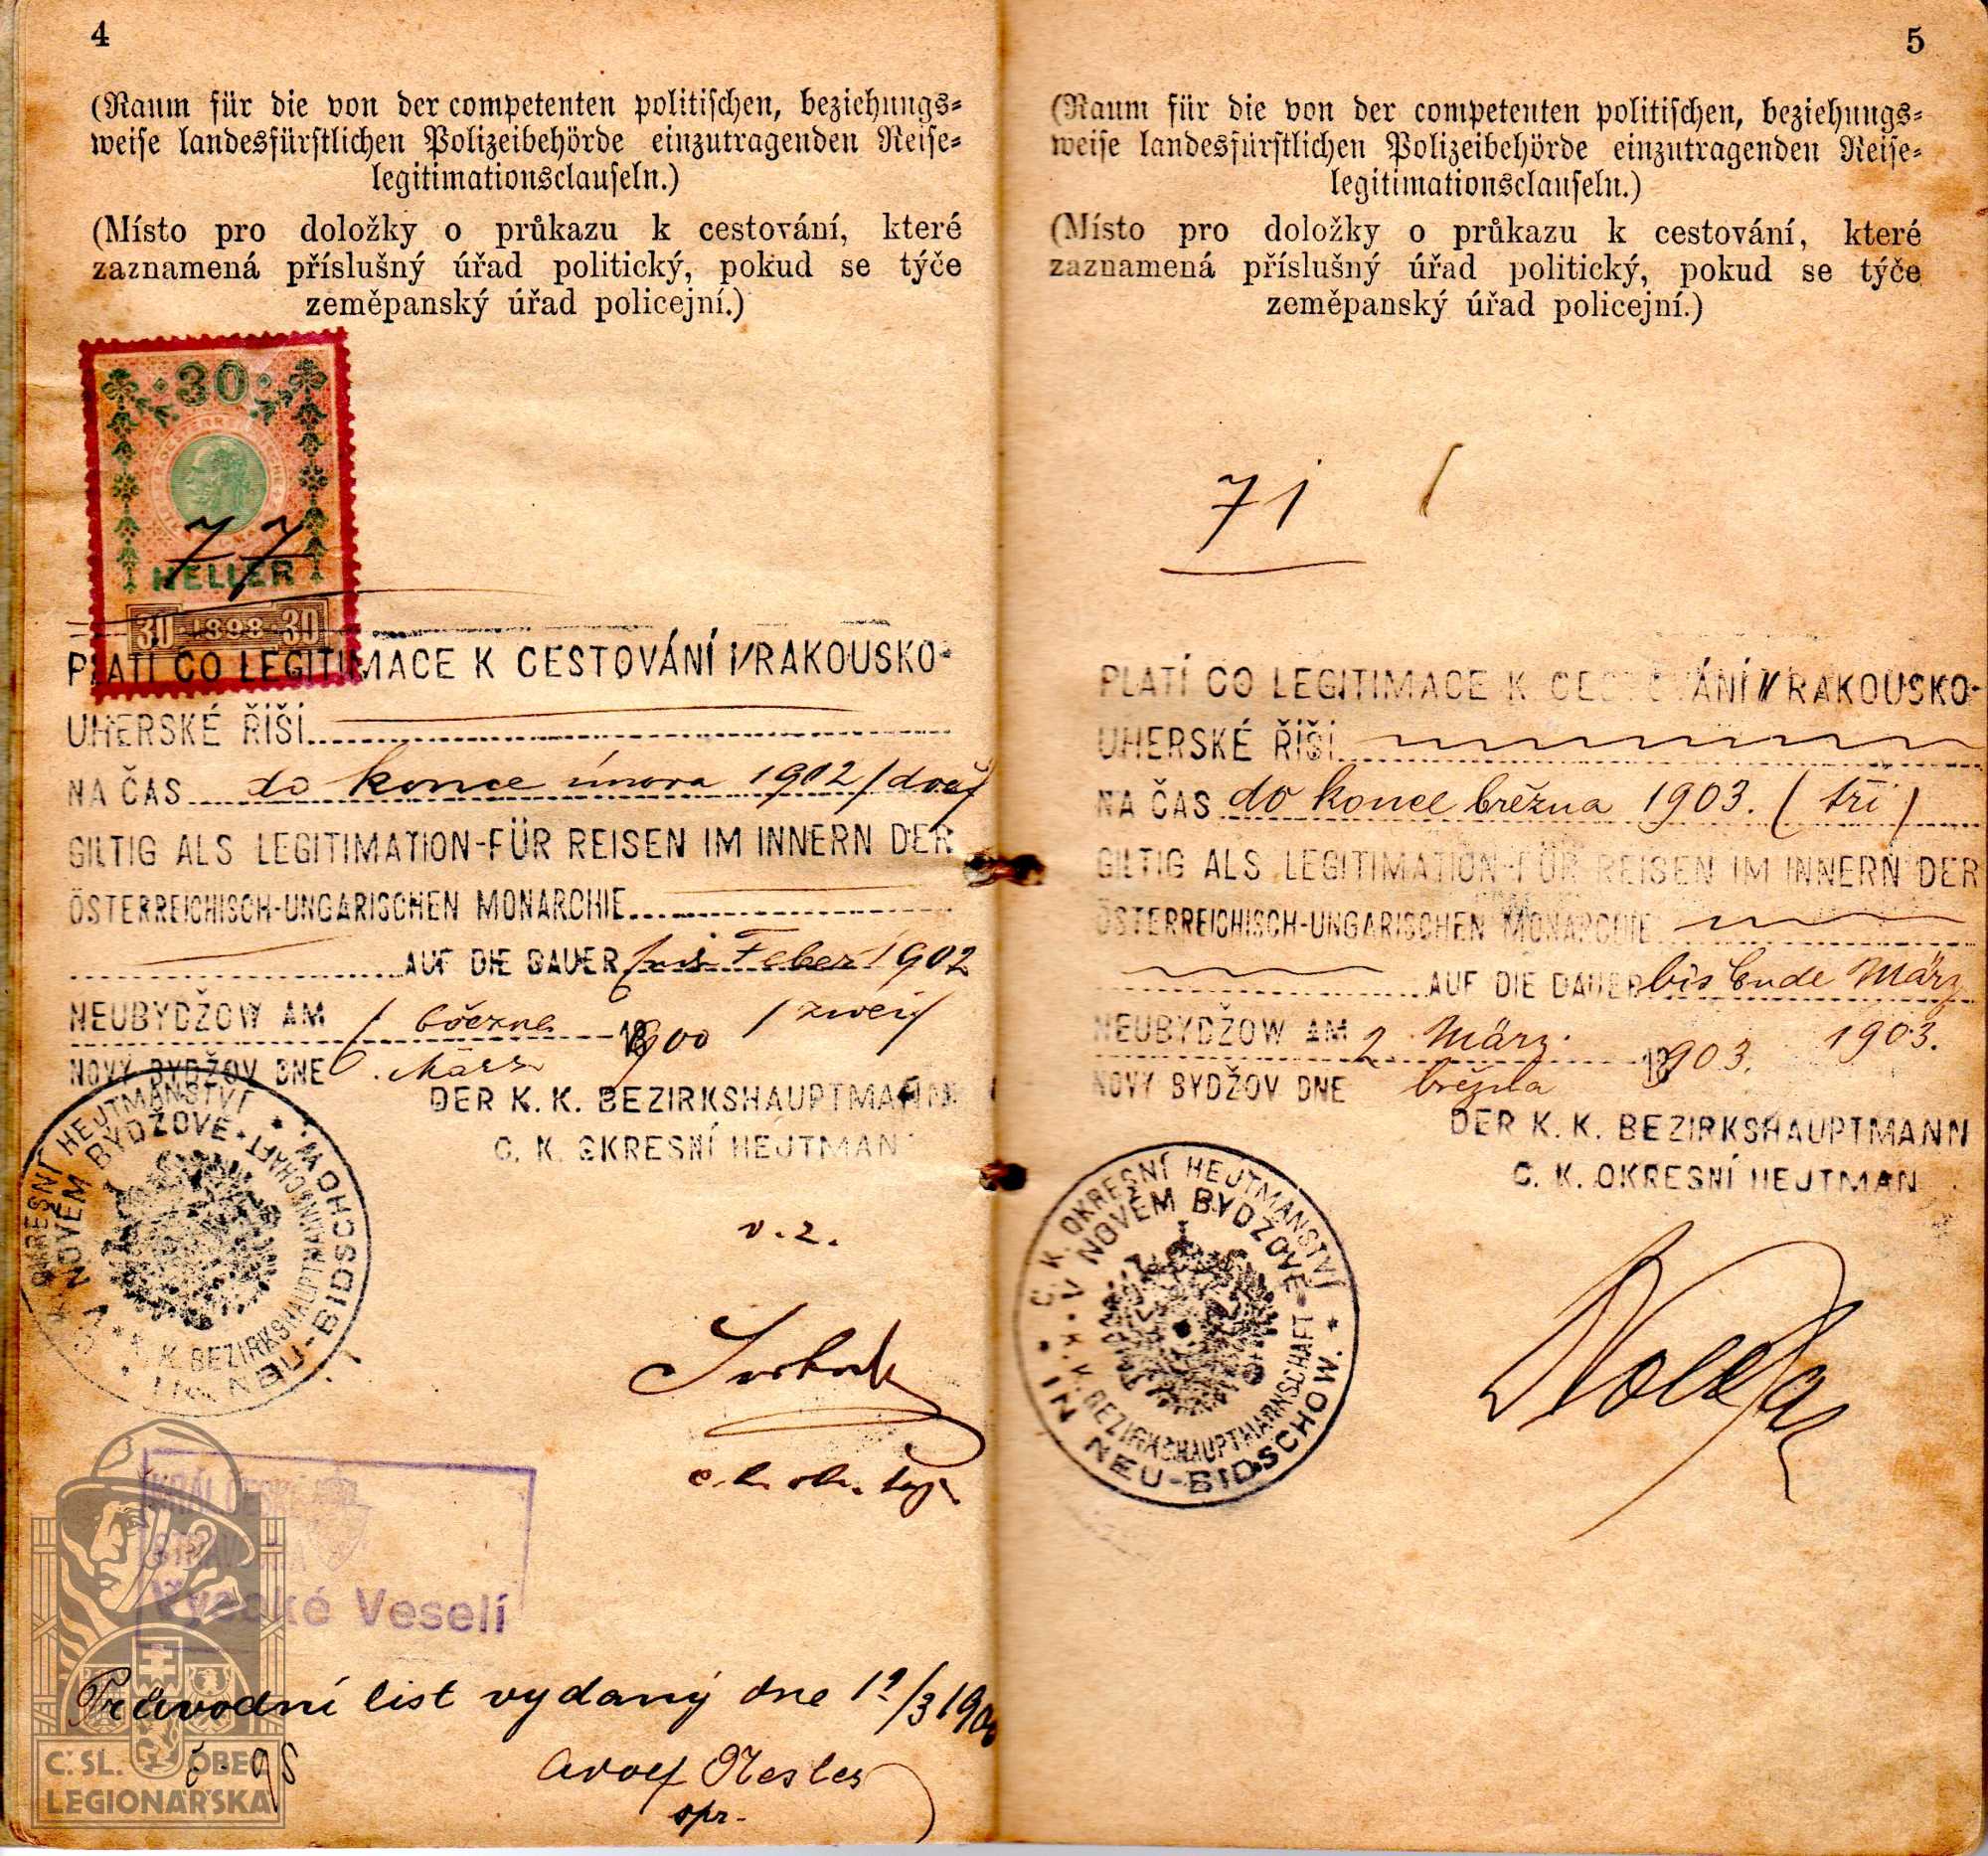 4
(Raum für die von der competenten politischen, beziehungs-
weise landesfürstlichen Polizeibehörde einzutragenden Reise-
legitimationsclauseln.)
(Místo pro doložky o průkazu k cestování, které
zaznamená příslušný úřad politický, pokud se týče
zeměpanský úřad policejní.)
30
77
HELLER
30 1898 30
PLATÍ CO LEGITIMACE K CESTOVÁNÍ V RAKOUSKO-
UHERSKÉ ŘÍŠI
NA ČAS do konce února 1902 /dva/
GILTIG ALS LEGITIMATION FÜR REISEN IM INNERN DER
ÖSTERREICHISCH-UNGARISCHEN MONARCHIE
AUF DIE DAUER bis Feber 1902
NEUBYDŽOW AM 1 března 1900 /zwei/
NOVÝ BYDŽOV DNE März
DER K. K. BEZIRKSHAUPTMANN
C. K. OKRESNÍ HEJTMAN
v. z.
C. K. OKRESNÍ HEJTMANSTVÍ
V NOVÉM BYDŽOVĚ
K. K. BEZIRKSHAUPTMANNSCHAFT
IN NEU-BIDSCHOW.
Vysoké Veselí
Průvodní list vydaný dne 1/3 1900
č. 98
Adolf
C. SL. OBEC
LEGIONÁŘSKÁ
5
(Raum für die von der competenten politischen, beziehungs-
weise landesfürstlichen Polizeibehörde einzutragenden Reise-
legitimationsclauseln.)
(Místo pro doložky o průkazu k cestování, které
zaznamená příslušný úřad politický, pokud se týče
zeměpanský úřad policejní.)
71
PLATÍ CO LEGITIMACE K CESTOVÁNÍ V RAKOUSKO-
UHERSKÉ ŘÍŠI
NA ČAS do konce března 1903. (tři)
GILTIG ALS LEGITIMATION FÜR REISEN IM INNERN DER
ÖSTERREICHISCH-UNGARISCHEN MONARCHIE
AUF DIE DAUER bis Ende März
NEUBYDŽOW AM 2. März 1903. 1903.
NOVÝ BYDŽOV DNE března
DER K. K. BEZIRKSHAUPTMANN
C. K. OKRESNÍ HEJTMAN
C. K. OKRESNÍ HEJTMANSTVÍ
V NOVÉM BYDŽOVĚ
K. K. BEZIRKSHAUPTMANNSCHAFT
IN NEU-BIDSCHOW.